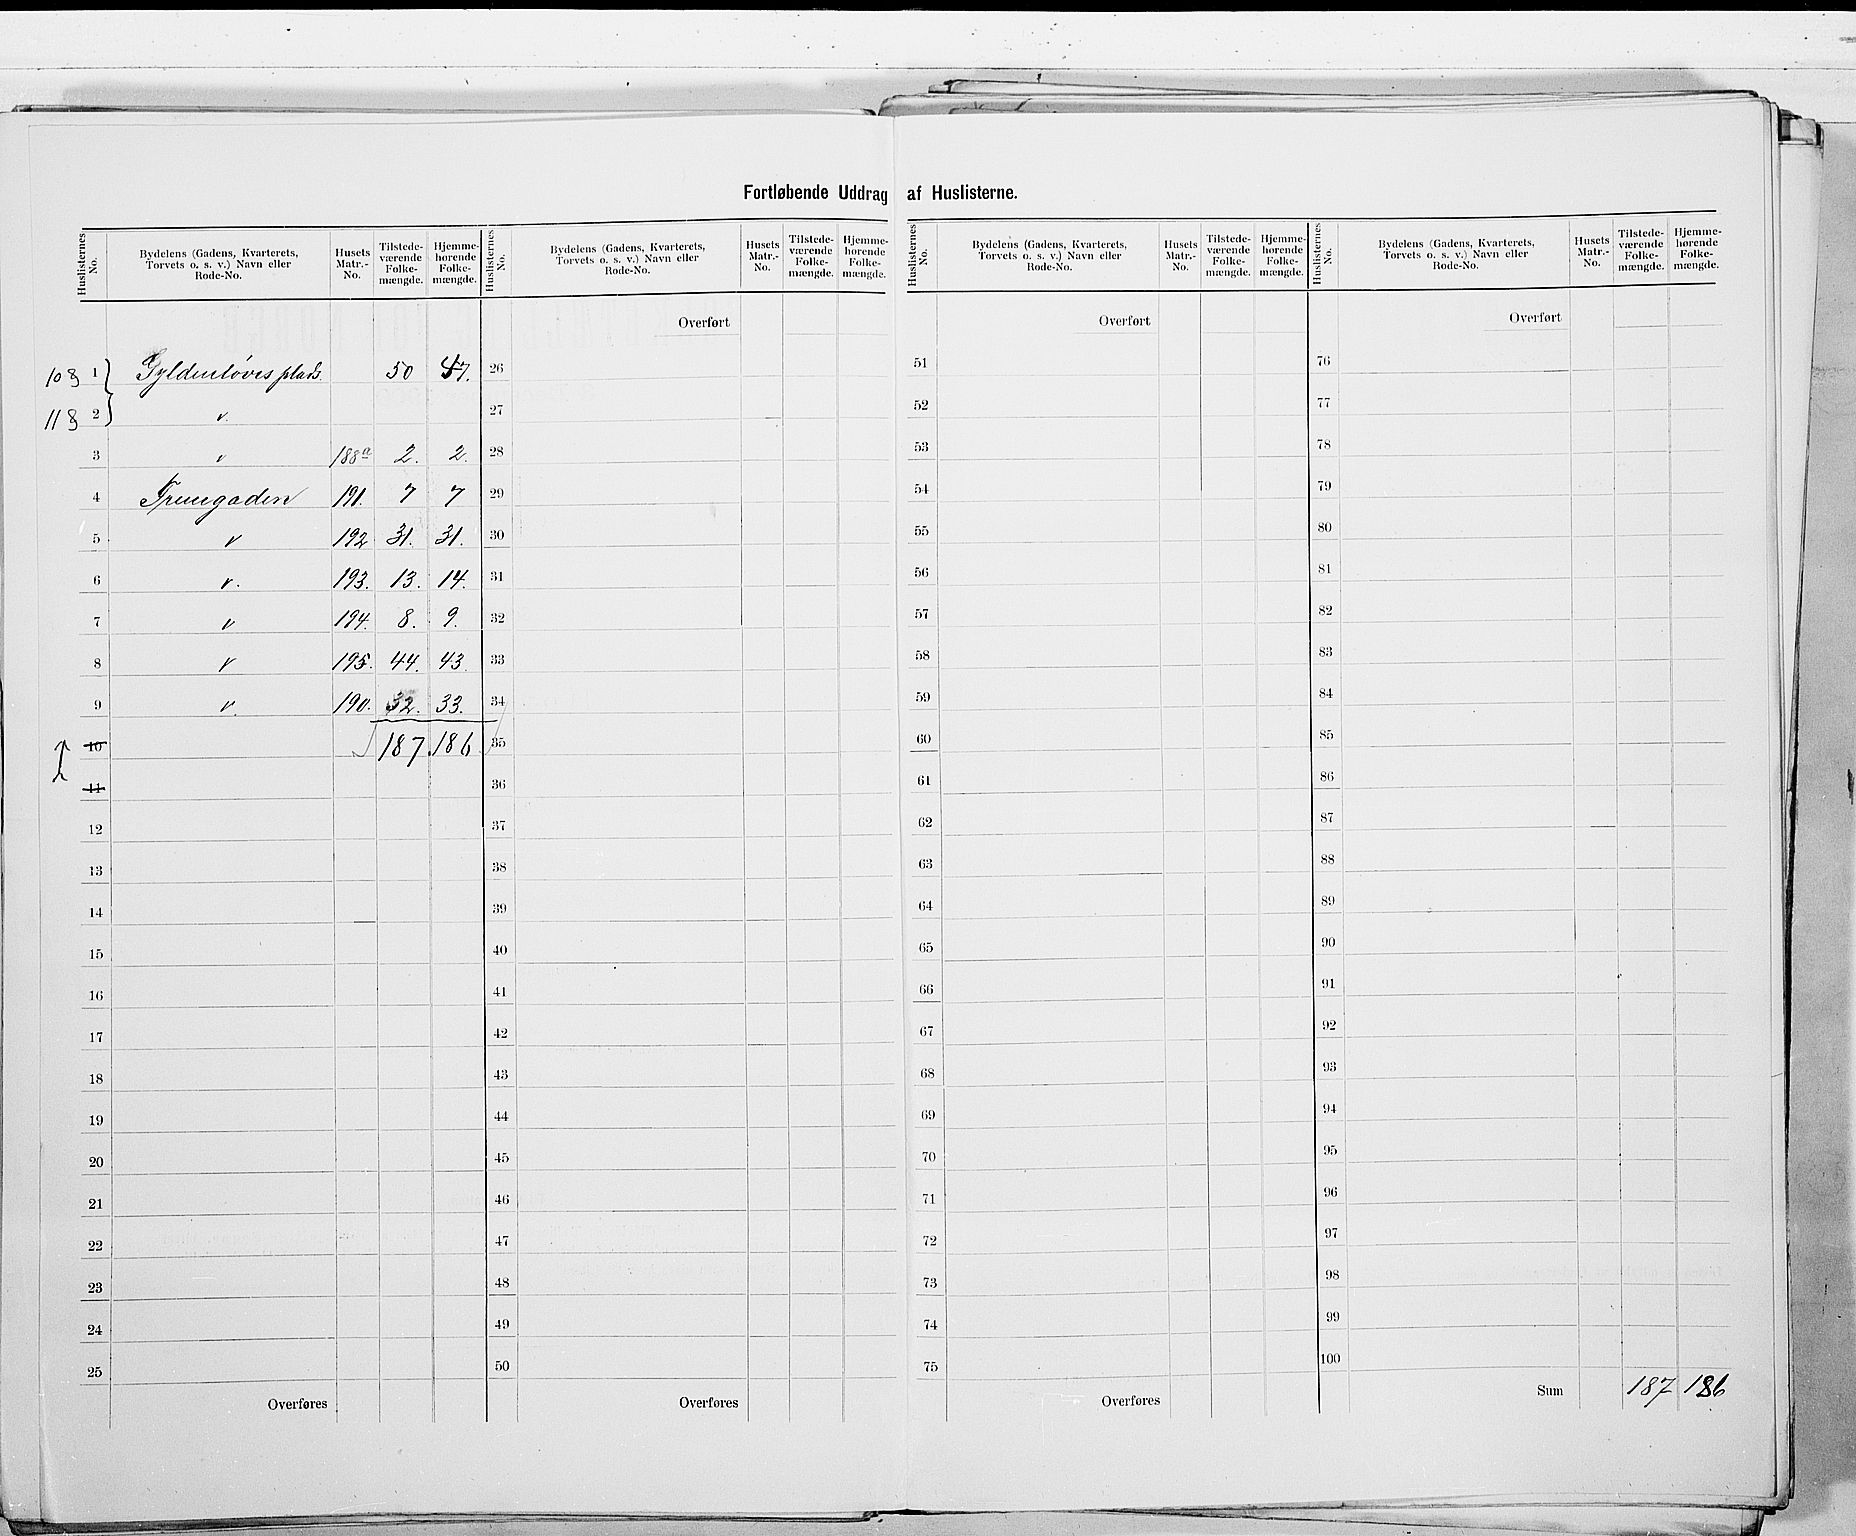 Fortløbende Uddrag af Huslisterne.
Huslisternes No. Bydelens (Gadens, Kvarterets, Torvets o. s. v.) Navn eller Rode-No. Husets Matr.-No. Tilstedeværende Folkemængde. Hjemmehørende Folkemængde.
Huslisternes No. Bydelens (Gadens, Kvarterets, Torvets o. s. v.) Navn eller Rode-No. Husets Matr.-No. Tilstedeværende Folkemængde. Hjemmehørende Folkemængde.
Huslisternes No. Bydelens (Gadens, Kvarterets, Torvets o. s. v.) Navn eller Rode-No. Husets Matr.-No. Tilstedeværende Folkemængde. Hjemmehørende Folkemængde.
Huslisternes No. Bydelens (Gadens, Kvarterets, Torvets o. s. v.) Navn eller Rode-No. Husets Matr.-No. Tilstedeværende Folkemængde. Hjemmehørende Folkemængde.
10 & 1 Gyldenløves plads. 50 47.
11 & 2 "
3 " 188a 2. 2.
4 Tverrgaden 191. 7 7
5 " 192 31. 31.
6 " 193. 13. 14.
7 " 194. 8. 9.
8 " 195. 44. 43.
9 " 190. 32. 33.
10 187. 186
11
12
13
14
15
16
17
18
19
20
21
22
23
24
25
Overføres
Overført
26
27
28
29
30
31
32
33
34
35
36
37
38
39
40
41
42
43
44
45
46
47
48
49
50
Overføres
Overført
51
52
53
54
55
56
57
58
59
60
61
62
63
64
65
66
67
68
69
70
71
72
73
74
75
Overføres
Overført
76
77
78
79
80
81
82
83
84
85
86
87
88
89
90
91
92
93
94
95
96
97
98
99
100
Sum 187 186